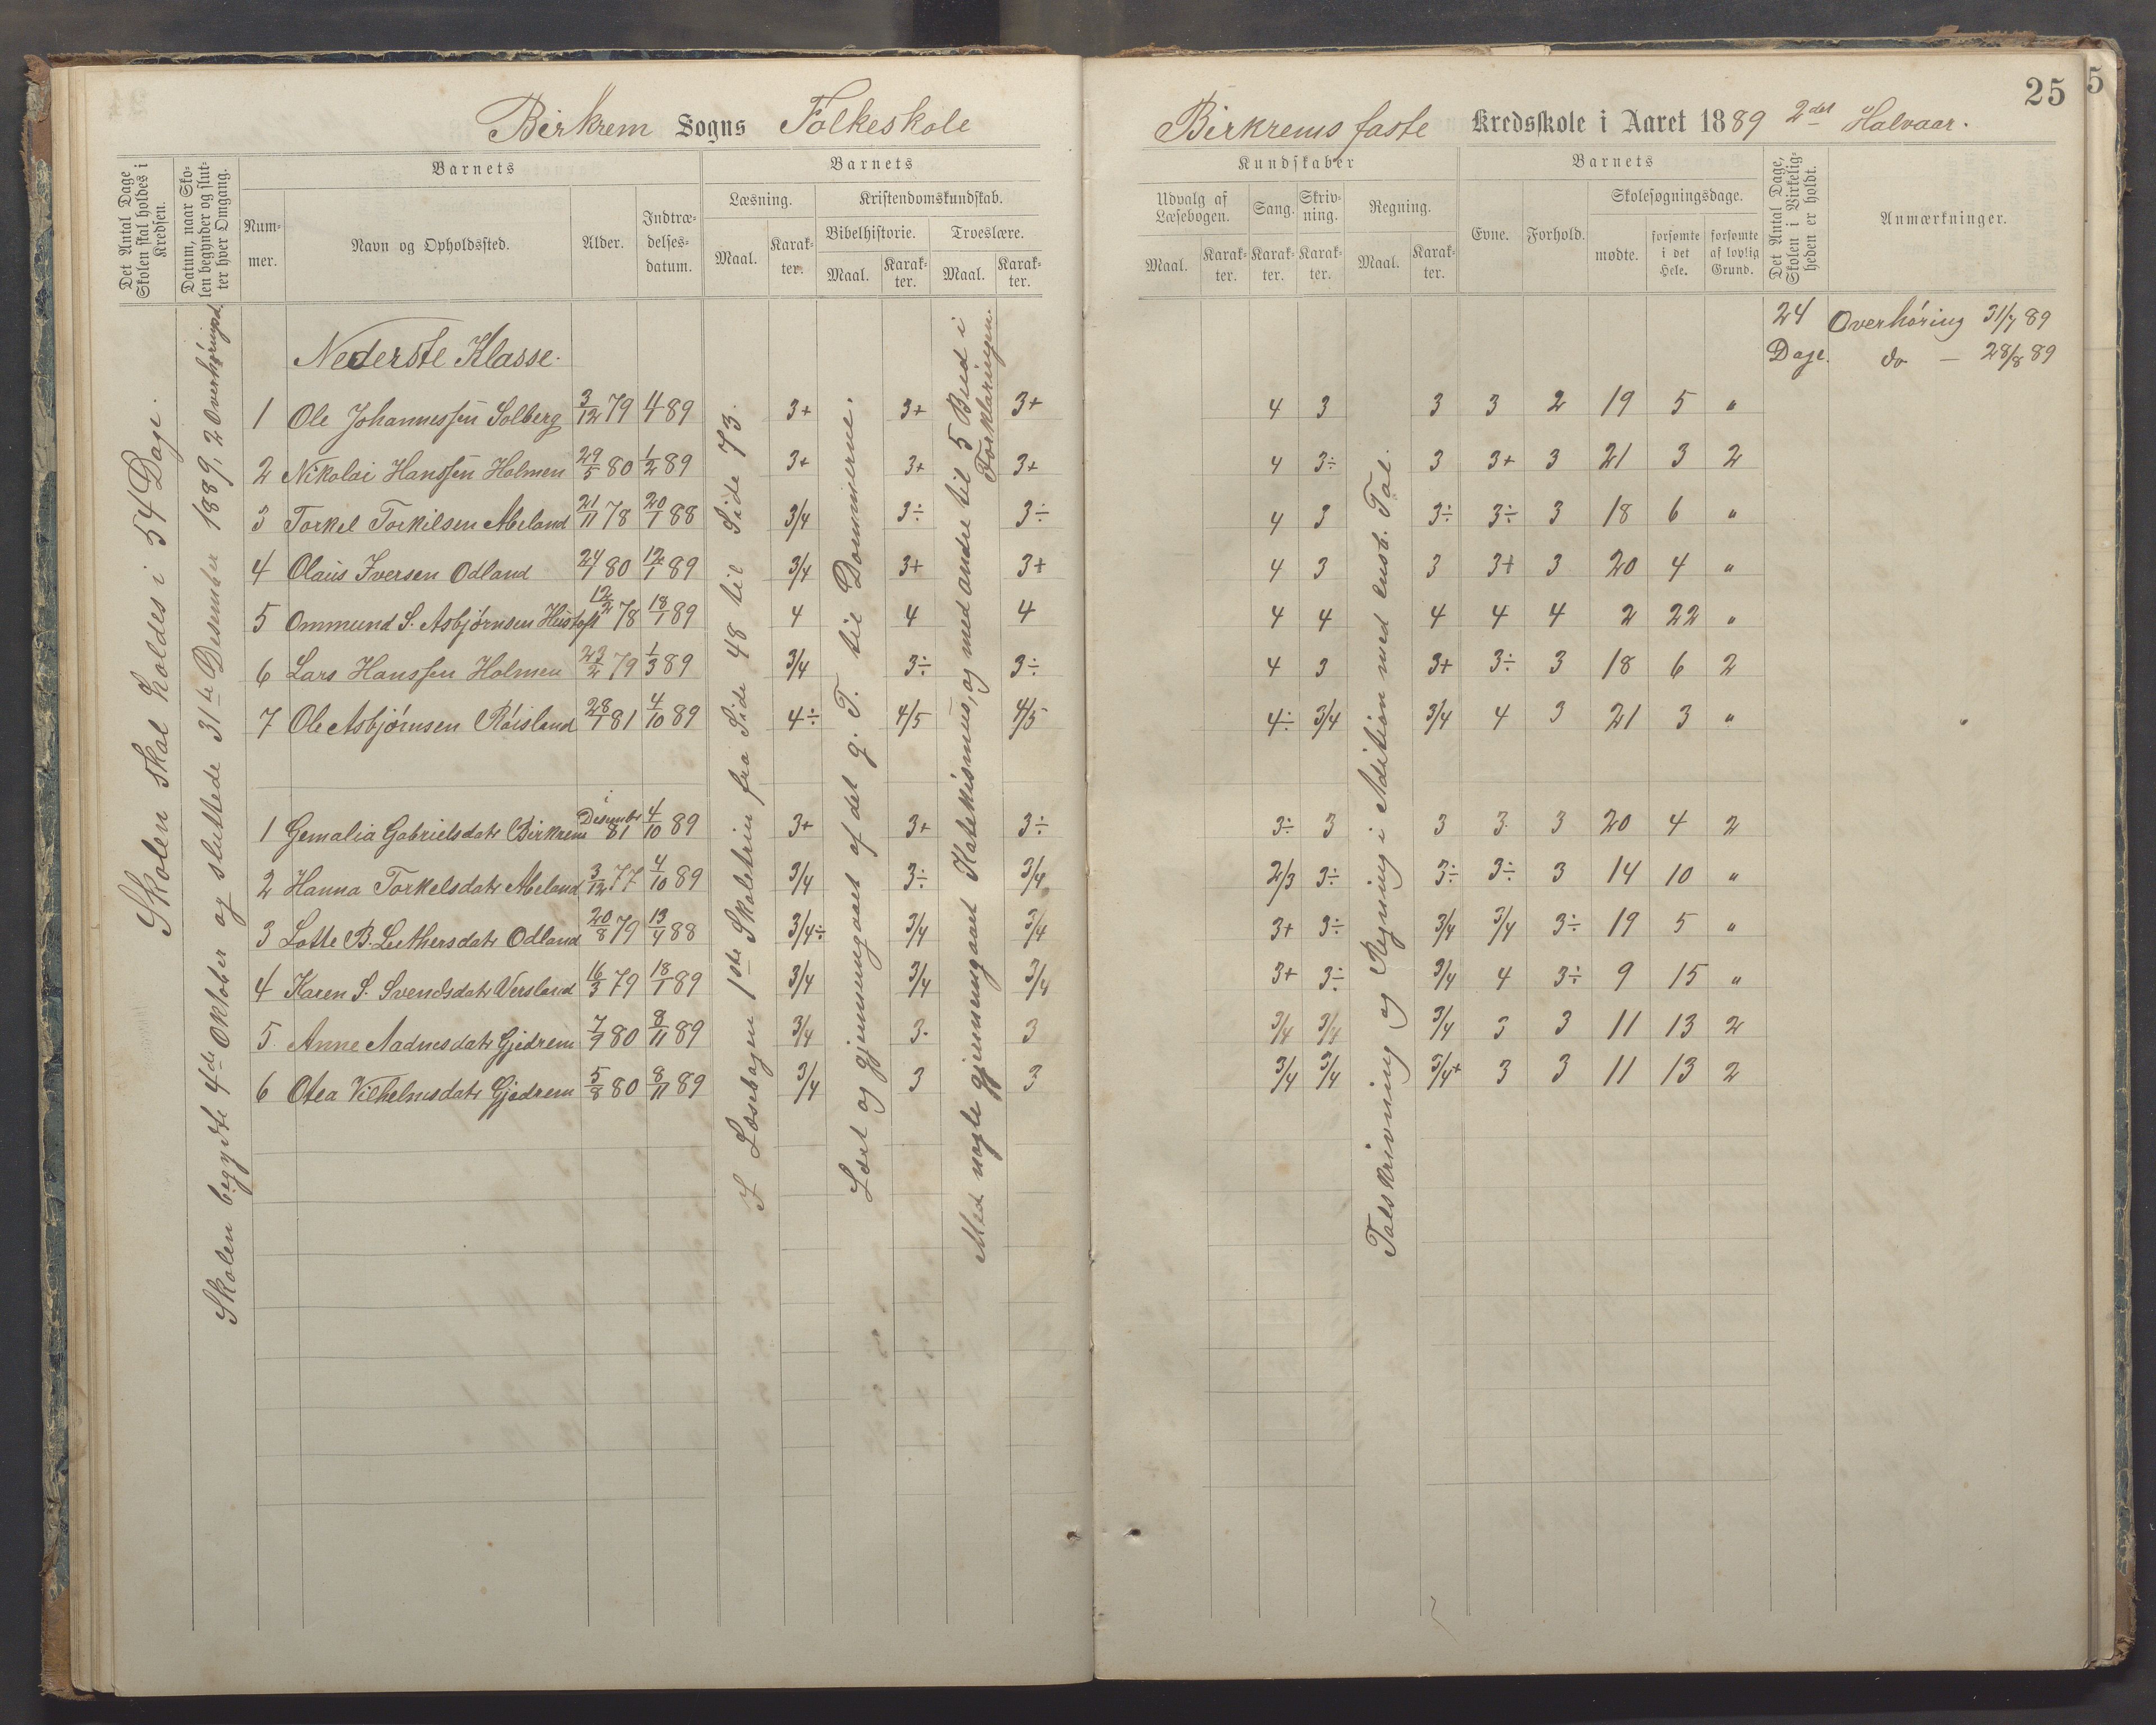 Birkrem Sogns Folkeskole
Det Antal Dage Skolen skal holdes i Kredsen.
Datum, naar Skolen begynder og slutter hver Omgang.
Barnets
Nummer.
Navn og Opholdssted.
Alder.
Indtrædelsesdatum.
Barnets
Læsning.
Maal.
Karakter.
Kristendomskundskab.
Bibelhistorie.
Maal.
Karakter.
Troeslære.
Maal.
Karakter.
Skolen skal holdes i 54 Dage.
Skolen begydte 4de Oktober og sluttede 31te Desember 1889, 2 Overhøringsd.
Nederste Klasse.
1 Ole Johannessen Solberg 3/12 79 4 89 3+ 3+ 3+
2 Nikolai Hanssen Holmen 29/5 80 1/2 89 3+ 3+ 3+
3 Torkel Torkilsen Abeland 21/11 78 20/1 88 3/4 3÷ 3÷
4 Olaus Iversen Odland 24/7 80 12/1 89 3/4 3+ 3+
5 Ommund S. Asbjørnsen Hustoft 12/2 78 18/1 89 4 4 4
6 Lars Hanssen Holmen 23/2 79 1/3 89 3/4 3÷ 3÷
7 Ole Asbjørnsen Røisland 28/1 81 4/10 89 4÷ 4/5 4/5
1 Gemalia Gabrielsdatr Birkrem i Desembr 81 4/10 89 3+ 3+ 3÷
2 Hanna Torkelsdatr Abeland 3/12 77 4/10 89 3/4 3÷ 3/4
3 Lotte B. Luthersdatr Odland 20/8 79 13/4 88 3/4÷ 3/4 3/4
4 Karen S. Svendsdatr Versland 16/3 79 18/1 89 3/4 3/4 3/4
5 Anne Aadnesdatr Gjedrem 7/9 80 8/11 89 3/4 3. 3
6 Otea Vilhelmsdatr Gjedrem 5/8 80 8/11 89 3/4 3 3
I Læsebogen 1ste Skoletrin fra Side 48 til Side 73.
Læst og gjennemgaaet af det g. T. til Dommerne.
Med nogle gjennemgaaet Katekismus, og med andre til 5 Bud i Forklaringen.
25
5
Birkrems faste Kredsskole i Aaret 1889 2det Halvaar.
Kundskaber
Udvalg af Læsebogen.
Maal.
Karakter.
Sang.
Karakter.
Skrivning.
Karakter.
Regning.
Maal.
Karakter.
Barnets
Evne.
Forhold.
Skolesøgningsdage.
mødte.
forsømte i det Hele.
forsømte af lovlig Grund.
Det Antal Dage, Skolen i Virkeligheden er holdt.
Anmærkninger.
24 Dage.
Overhøring 31/7 89
do — 28/8 89
4 3 3 3 2 19 5 "
4 3÷ 3 3+ 3 21 3 2
4 3 3÷ 3÷ 3 18 6 "
4 3 3 3+ 3 20 4 "
4 4 4 4 4 2 22 "
4 3 3+ 3÷ 3 18 6 2
4÷ 3/4 3/4 4 3 21 3 "
3÷ 3 3 3. 3 20 4 2
2/3 3÷ 3÷ 3÷ 3 14 10 "
3+ 3÷ 3/4 3/4 3÷ 19 5 "
3+ 3÷ 3/4 4 3÷ 9 15 "
3/4 3/4 3/4 3 3 11 13 2
3/4 3/4 3/4+ 3 3 11 13 2
Talskrivning og Regning i Adition med ensb. Tal.